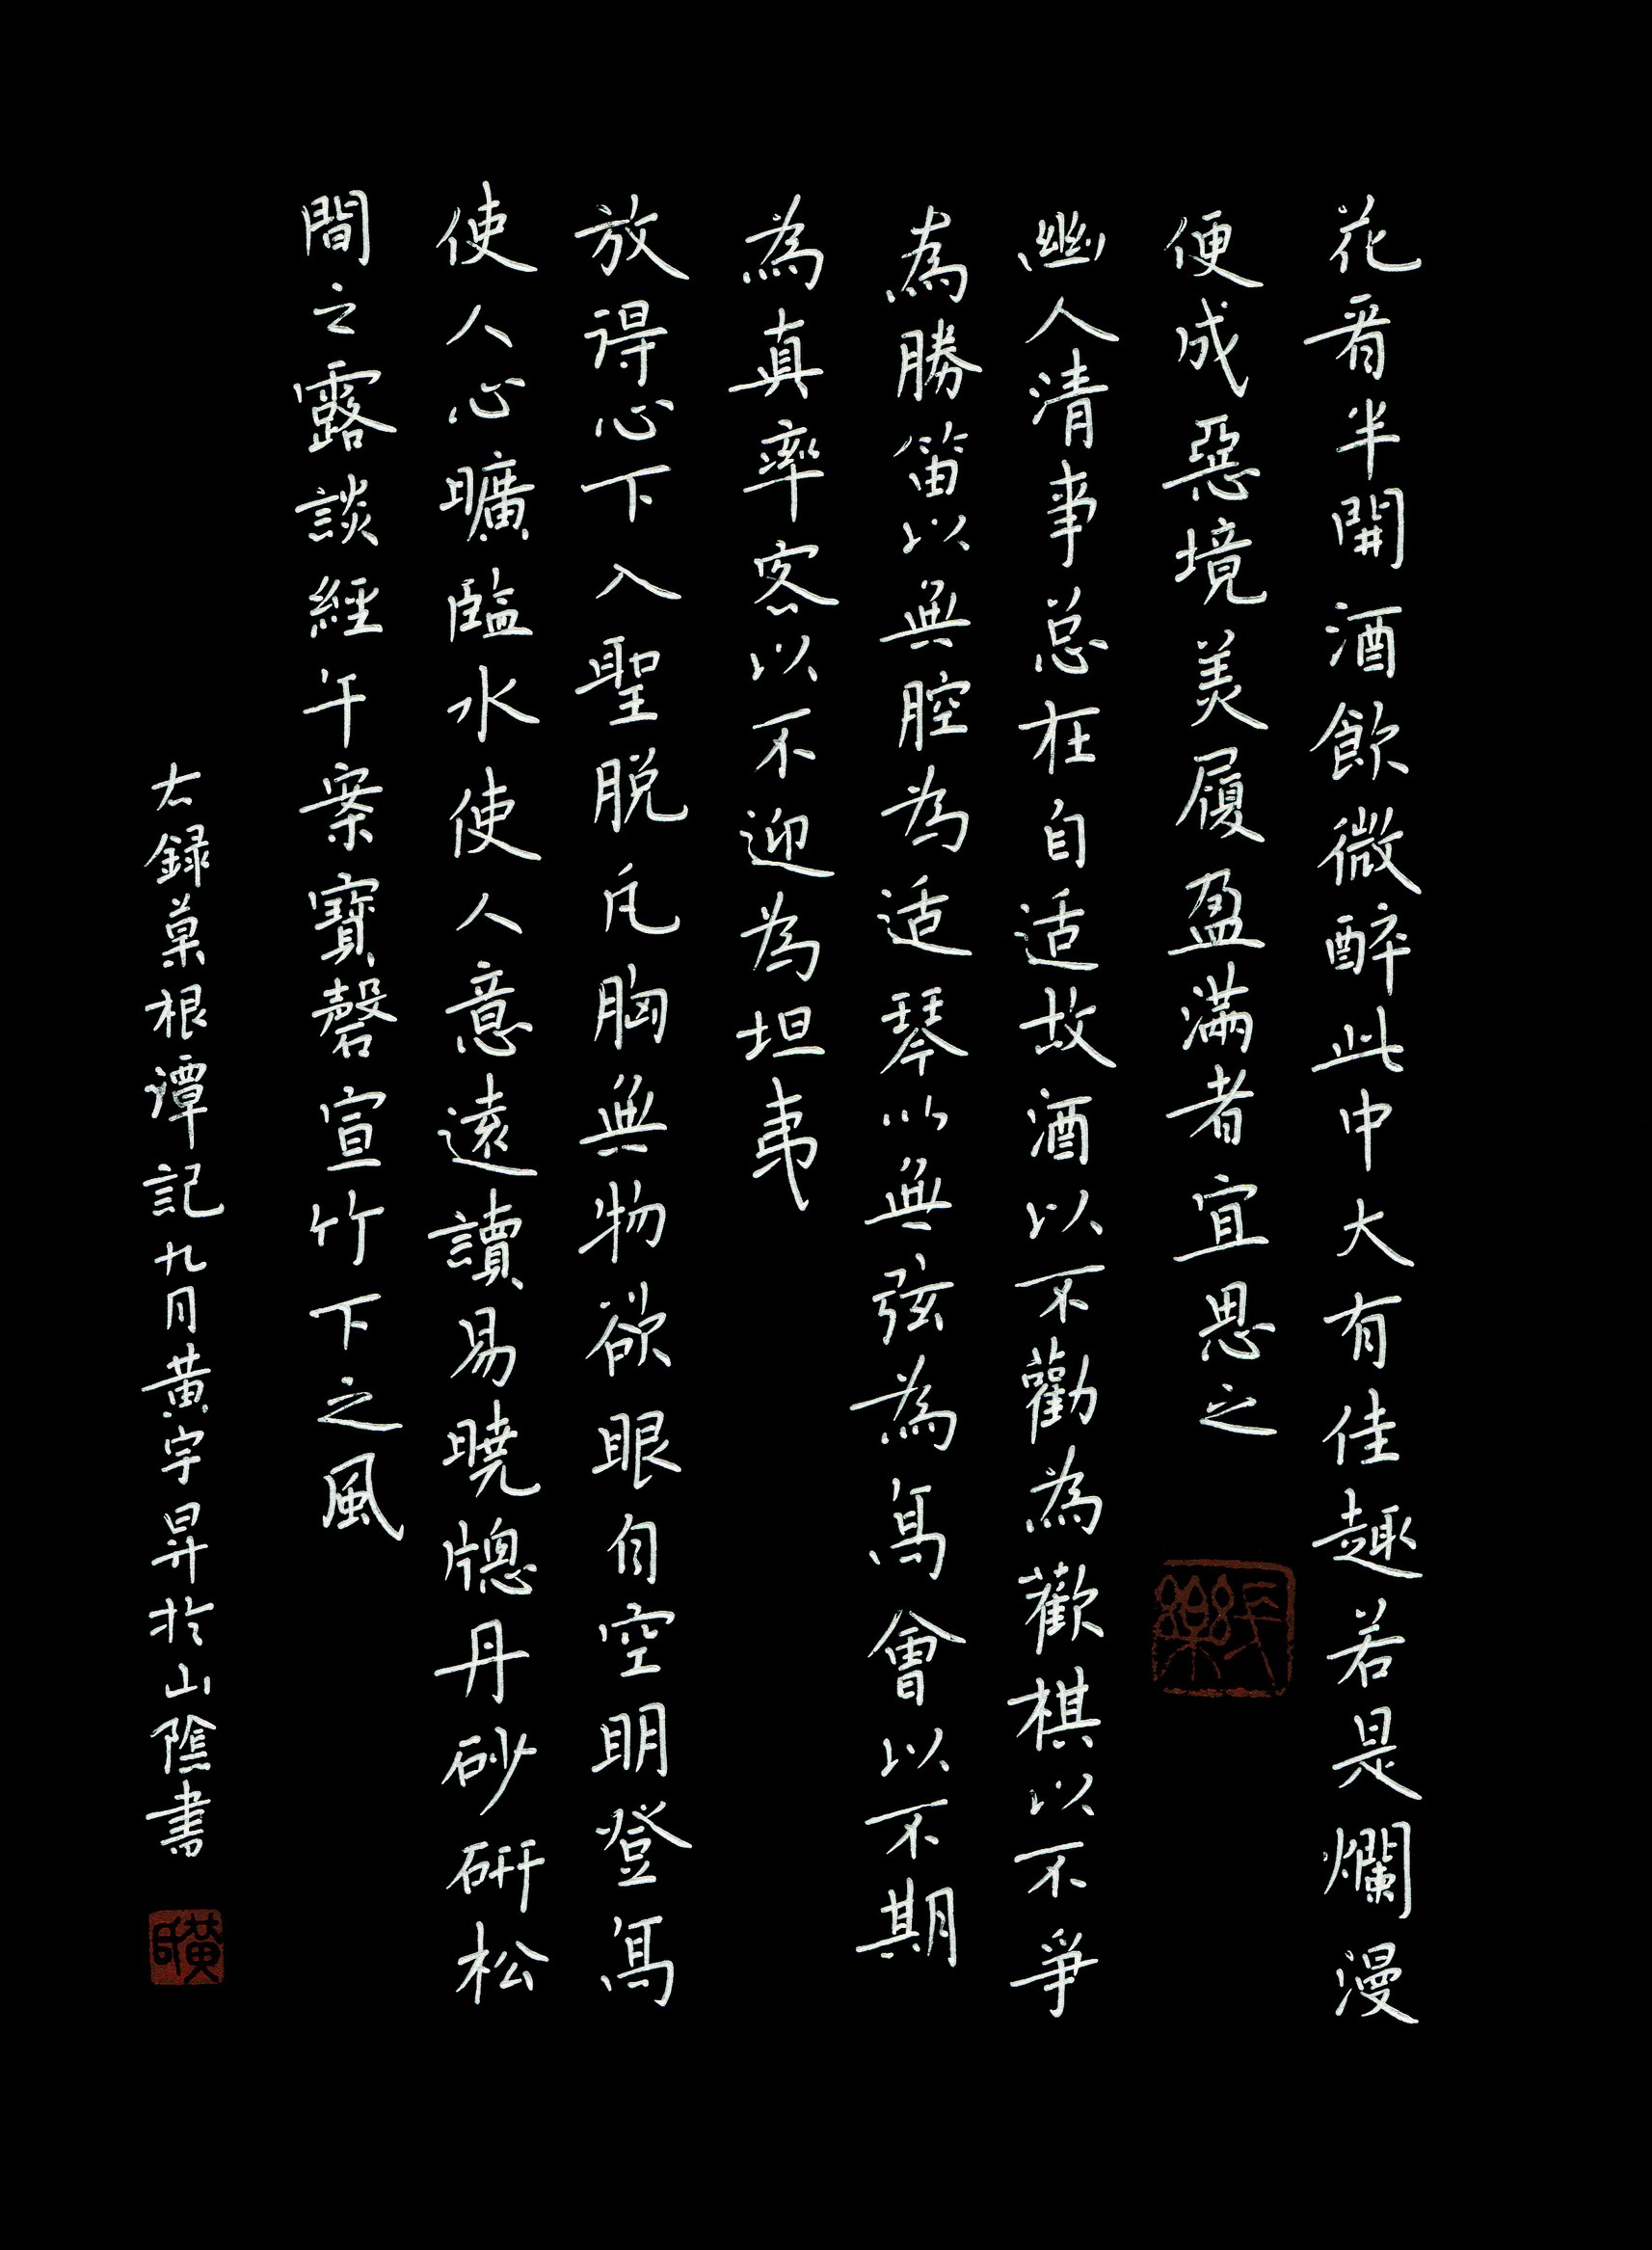 花看半開酒飲微醉此中大有佳趣若是爛漫
便成惡境美履盈滿者宜思之
幽人清事总在自适故酒以不勸為歡棋以不爭
為勝笛以無腔為适琴以無弦為高會以不期
為真率客以不迎為坦夷
放得心下入聖脱凡胸無物欲眼自空明登高
使人心曠臨水使人意遠讀易曉牕丹砂研松
間之露談經午案寶磬宣竹下之風
右録菜根譚記九月黃宇昇於山陰書